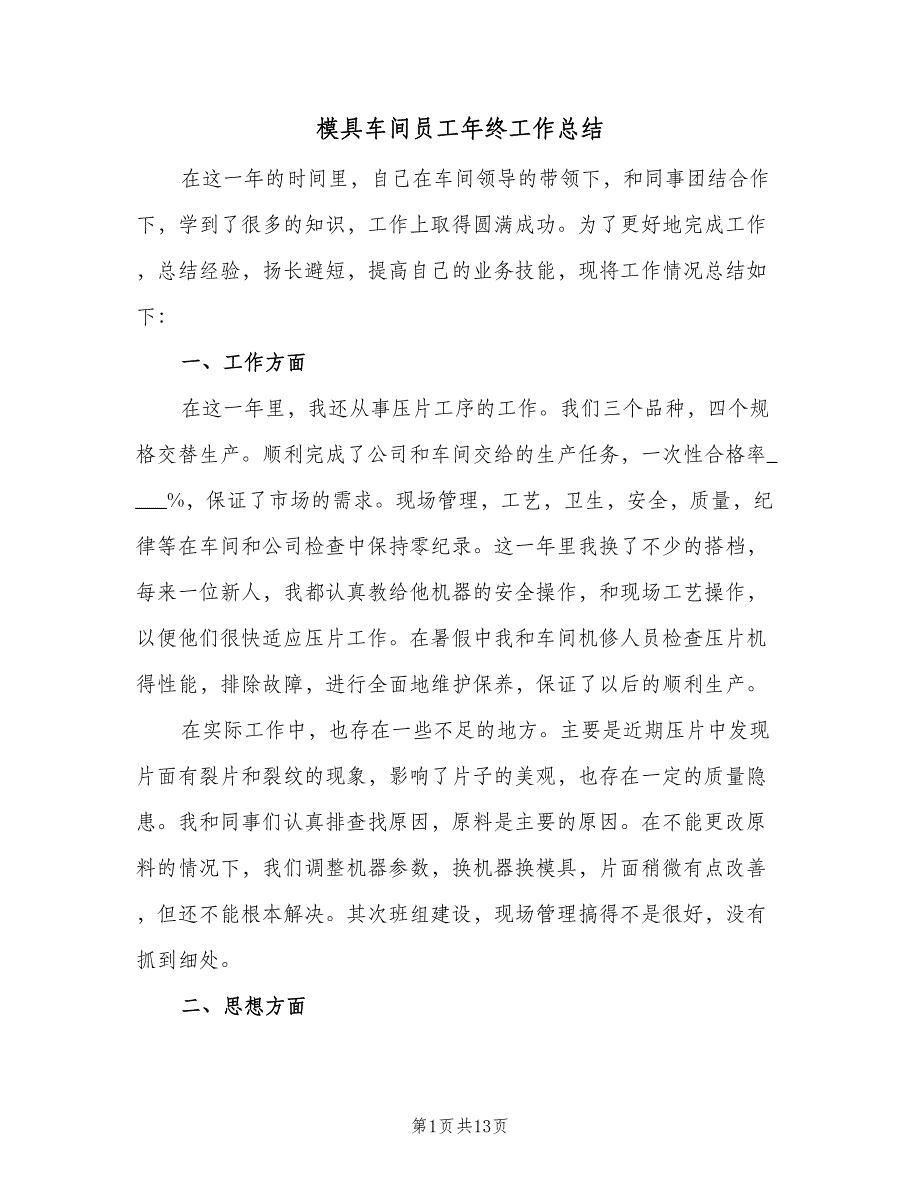 模具车间员工年终工作总结
在这一年的时间里，自己在车间领导的带领下，和同事团结合作
下，学到了很多的知识，工作上取得圆满成功。为了更好地完成工作
，总结经验，扬长避短，提高自己的业务技能，现将工作情况总结如
下：
一、工作方面
在这一年里，我还从事压片工序的工作。我们三个品种，四个规
格交替生产。顺利完成了公司和车间交给的生产任务，一次性合格率_
___%，保证了市场的需求。现场管理，工艺，卫生，安全，质量，纪
律等在车间和公司检查中保持零纪录。这一年里我换了不少的搭档，
每来一位新人，我都认真教给他机器的安全操作，和现场工艺操作，
以便他们很快适应压片工作。在暑假中我和车间机修人员检查压片机
得性能，排除故障，进行全面地维护保养，保证了以后的顺利生产。
在实际工作中，也存在一些不足的地方。主要是近期压片中发现
片面有裂片和裂纹的现象，影响了片子的美观，也存在一定的质量隐
患。我和同事们认真排查找原因，原料是主要的原因。在不能更改原
料的情况下，我们调整机器参数，换机器换模具，片面稍微有点改善
，但还不能根本解决。其次班组建设，现场管理搞得不是很好，没有
抓到细处。
二、思想方面
第1页共13页